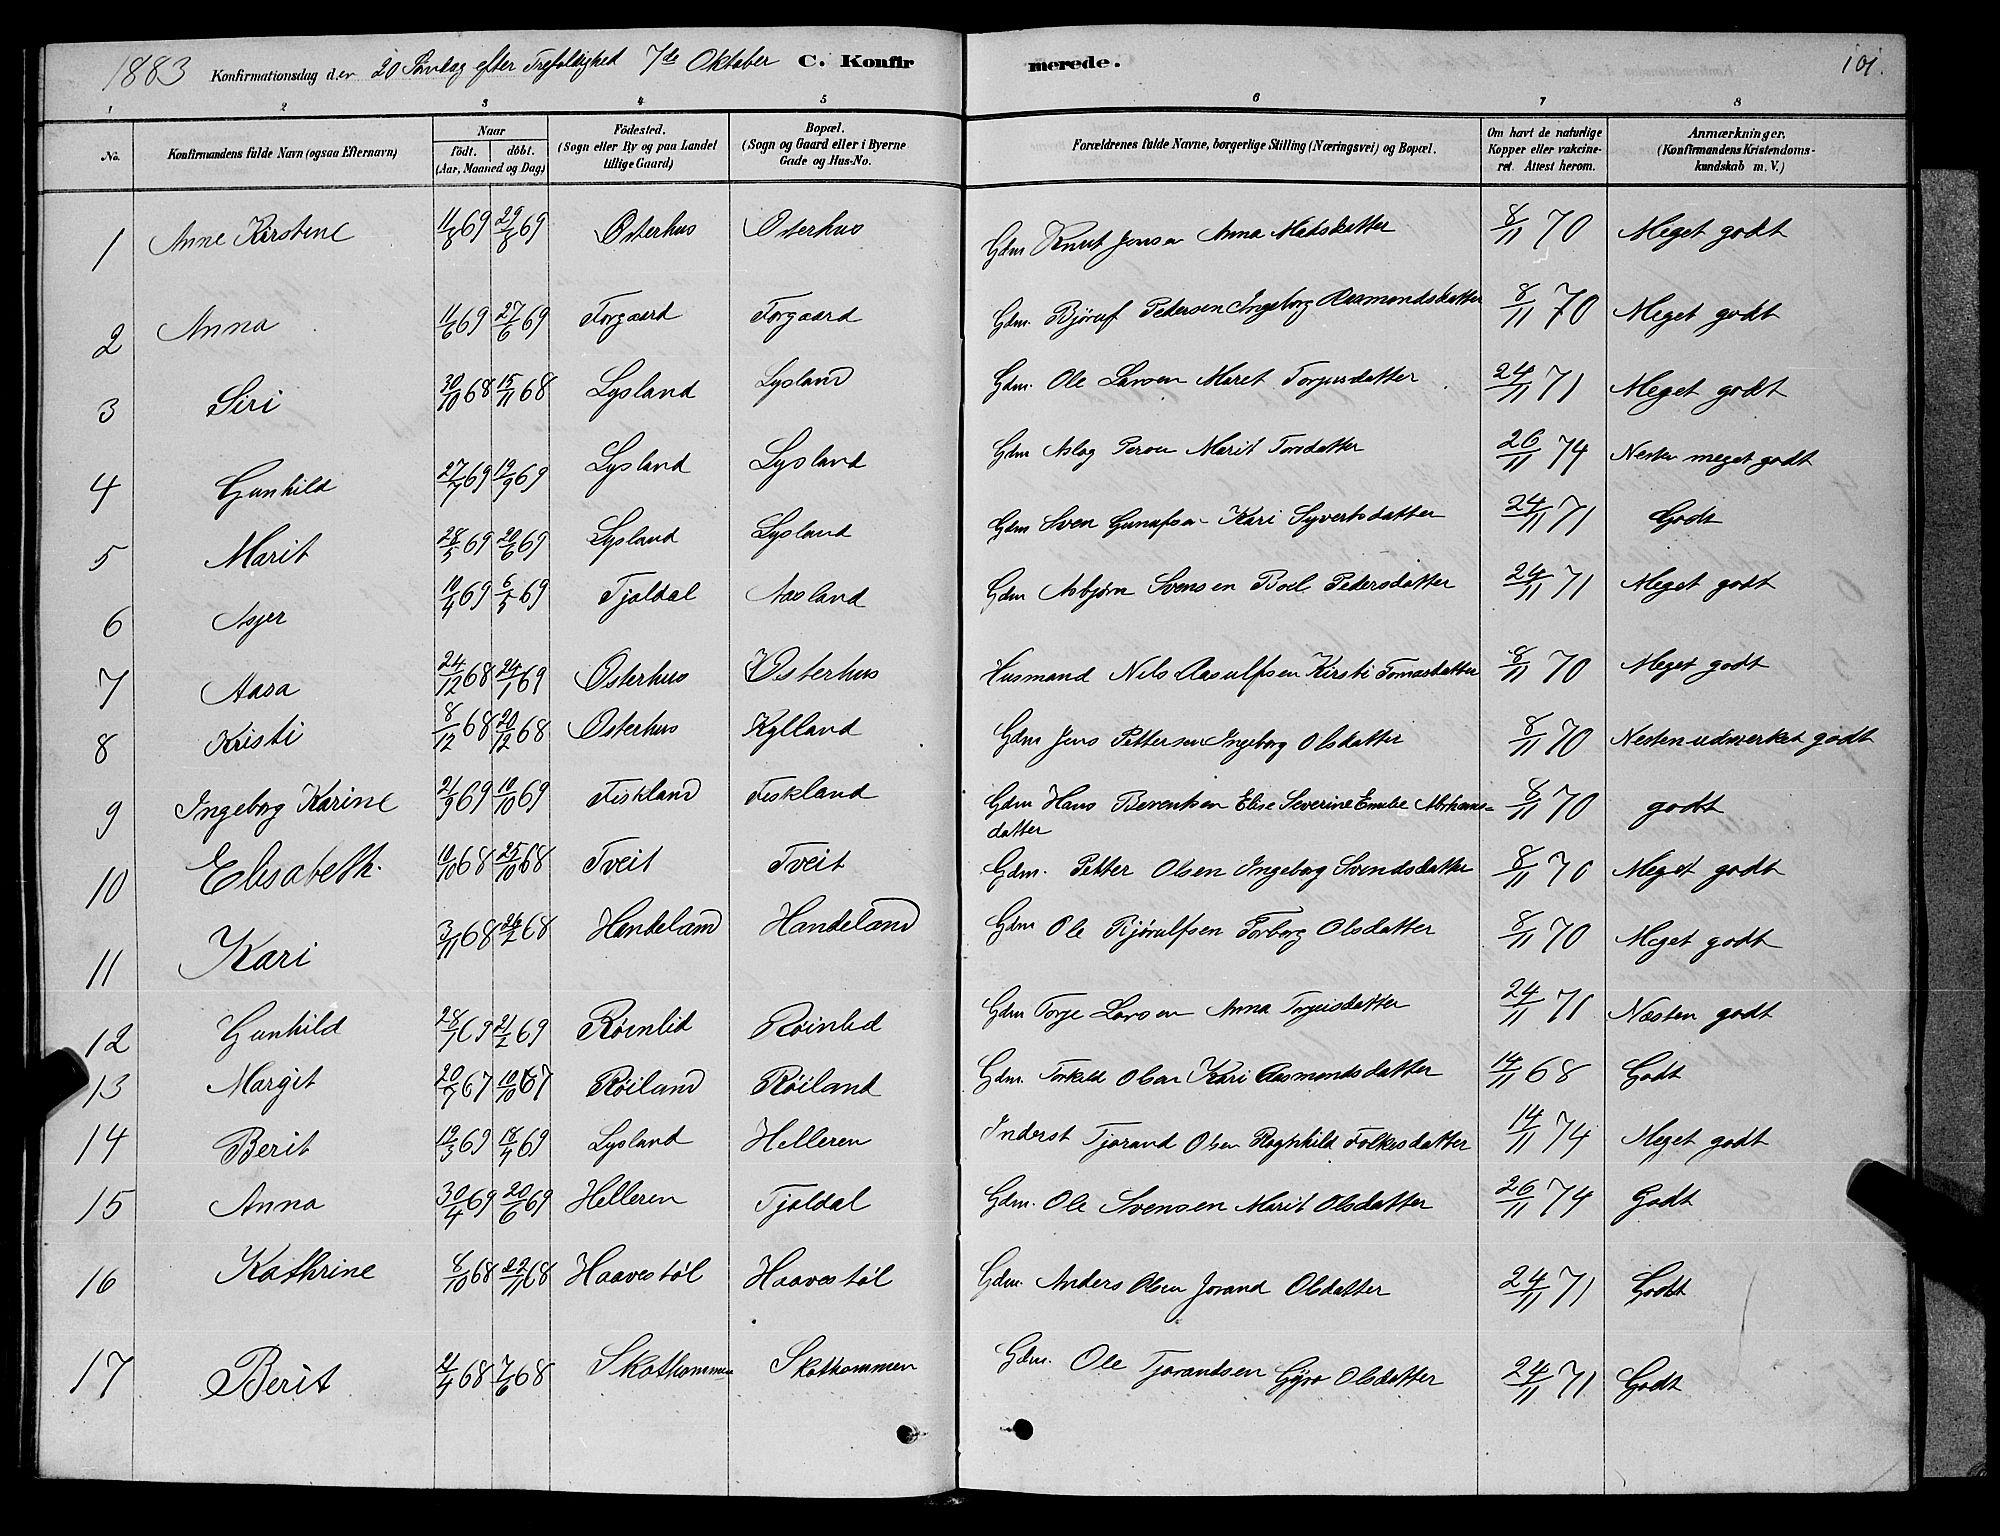 1883 Konfirmationsdag den 20 Søndag efter Trefoldighed 7de Oktober C. Konfirmerede. 101.
1 2 3 4 5 6 7 8
No. Konfirmandens fulde Navn (ogsaa Efternavn) Naar født. døbt. (Aar, Maaned og Dag) Fødested. (Sogn eller By og paa Landet tillige Gaard) Bopæl. (Sogn og Gaard eller i Byerne Gade og Hus-No. Forældrenes fulde Navne, borgerlige Stilling (Næringsvei) og Bopæl. Om havt de naturlige Kopper eller vakcineret. Attest herom. Anmærkninger. (Konfirmandens Kristendomskundskab m. V.)
1 Anne Kirstene 11/8 69 29/8 69 Østerhus Østerhus Gdm Knut Jensen Anna Madsdatter 8/11 70 Meget godt
2 Anna 11/6 69 27/6 69 Torgaard Torgaard Gdm. Bjørulf Pedersen Ingeborg Aasmondsdatter 8/11 70 Meget godt
3 Siri 30/10 68 15/11 68 Lysland Lysland Gdm. Ole Larsen Maret Torjusdatter 24/11 71 Meget godt
4 Gunhild 27/7 69 19/9 69 Lysland Lysland Gdm Aslag Persen Marit Torsdatter 26/11 74 Nesten meget godt
5 Marit 28/5 69 20/6 69 Lysland Lysland Gdm Sven Gunufsen Kari Syvertsdatter 24/11 71 Godt
6 Asjer 10/4 69 6/5 69 Tjaldal Aasland Gdm Asbjørn Svensen Boel Pedersdatter 24/11 71 Meget godt
7 Aasa 24/12 68 24/1 69 Østerhus Østerhus Husmand Nils Aasulfsen Kirsti Tomasdatter 8/11 70 Meget godt
8 Kristi 8/12 68 20/12 68 Østerhus Kylland Gdm Jens Pettersen Ingeborg Olsdatter 8/11 70 Nesten udmerket godt
9 Ingeborg Karine 21/9 69 10/10 69 Fiskland Fiskland Gdm Hans Berentsen Elise Severine Emilie Abrhamsdatter 8/11 70 godt
10 Elisabeth. 10/10 68 25/10 68 Tveit Tveit Gdm. Petter Olsen Ingeborg Svendsdatter 8/11 70 Meget godt
11 Kari 3/11 68 26/12 68 Handeland Handeland Gdm Ole Bjørulfsen Torborg Olsdatter 8/11 70 Meget godt
12 Gunhild 28/1 69 21/2 69 Røinlid Røinlid Gdm Torje Larsen Anna Torjusdatter 24/11 71 Næsten godt
13 Margit 20/7 67 10/10 67 Røiland Røiland Gdm. Torkild Olsen Kari Aasmondsdatter 14/11 68 Godt
14 Berit 19/3 69 18/4 69 Lysland Helleren Inderst Tjorand Olsen Raghild Folkesdatter 14/11 74 Meget godt
15 Anna 30/4 69 20/6 69 Helleren Tjaldal Gdm. Ole Svensen Marit Olsdatter 26/11 74 Godt
16 Kathrine 8/10 68 22/11 68 Haavestøl Haavestøl Gdm. Anders Olsen Jorand Olsdatter 24/11 71 Godt
17 Berit 21/4 68 7/6 68 Skathommen Skathommen Gdm. Ole Tjorandsen Gyro Olsdatter 24/11 71 Godt